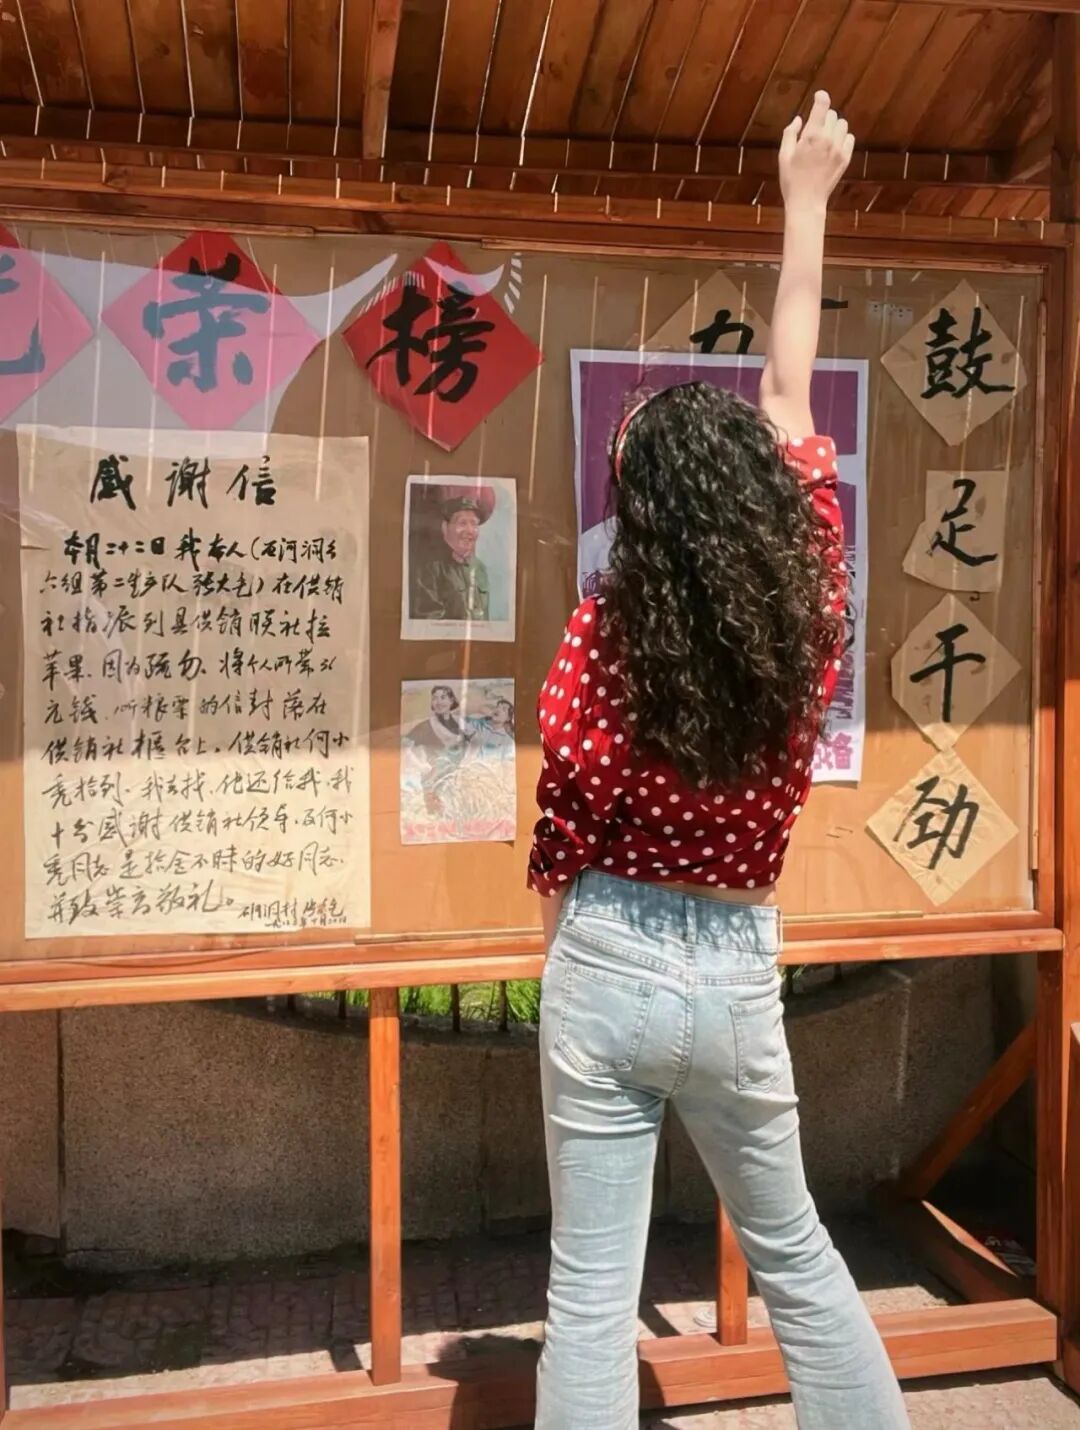 光荣榜
感谢信
本月二十二日我本人(石河洞乡
六组第二生产队张大毛)在供销
社指派到县供销联社拉
苹果.因为疏忽、将个人所带36
元钱.所粮票的信封落在
供销社柜台上。供销社何小
亮拾到.我去找.他还给我.我
十分感谢供销社领导.及何小
亮同志是拾金不昧的好同志.
并致崇高敬礼。
力
鼓
足
干
劲